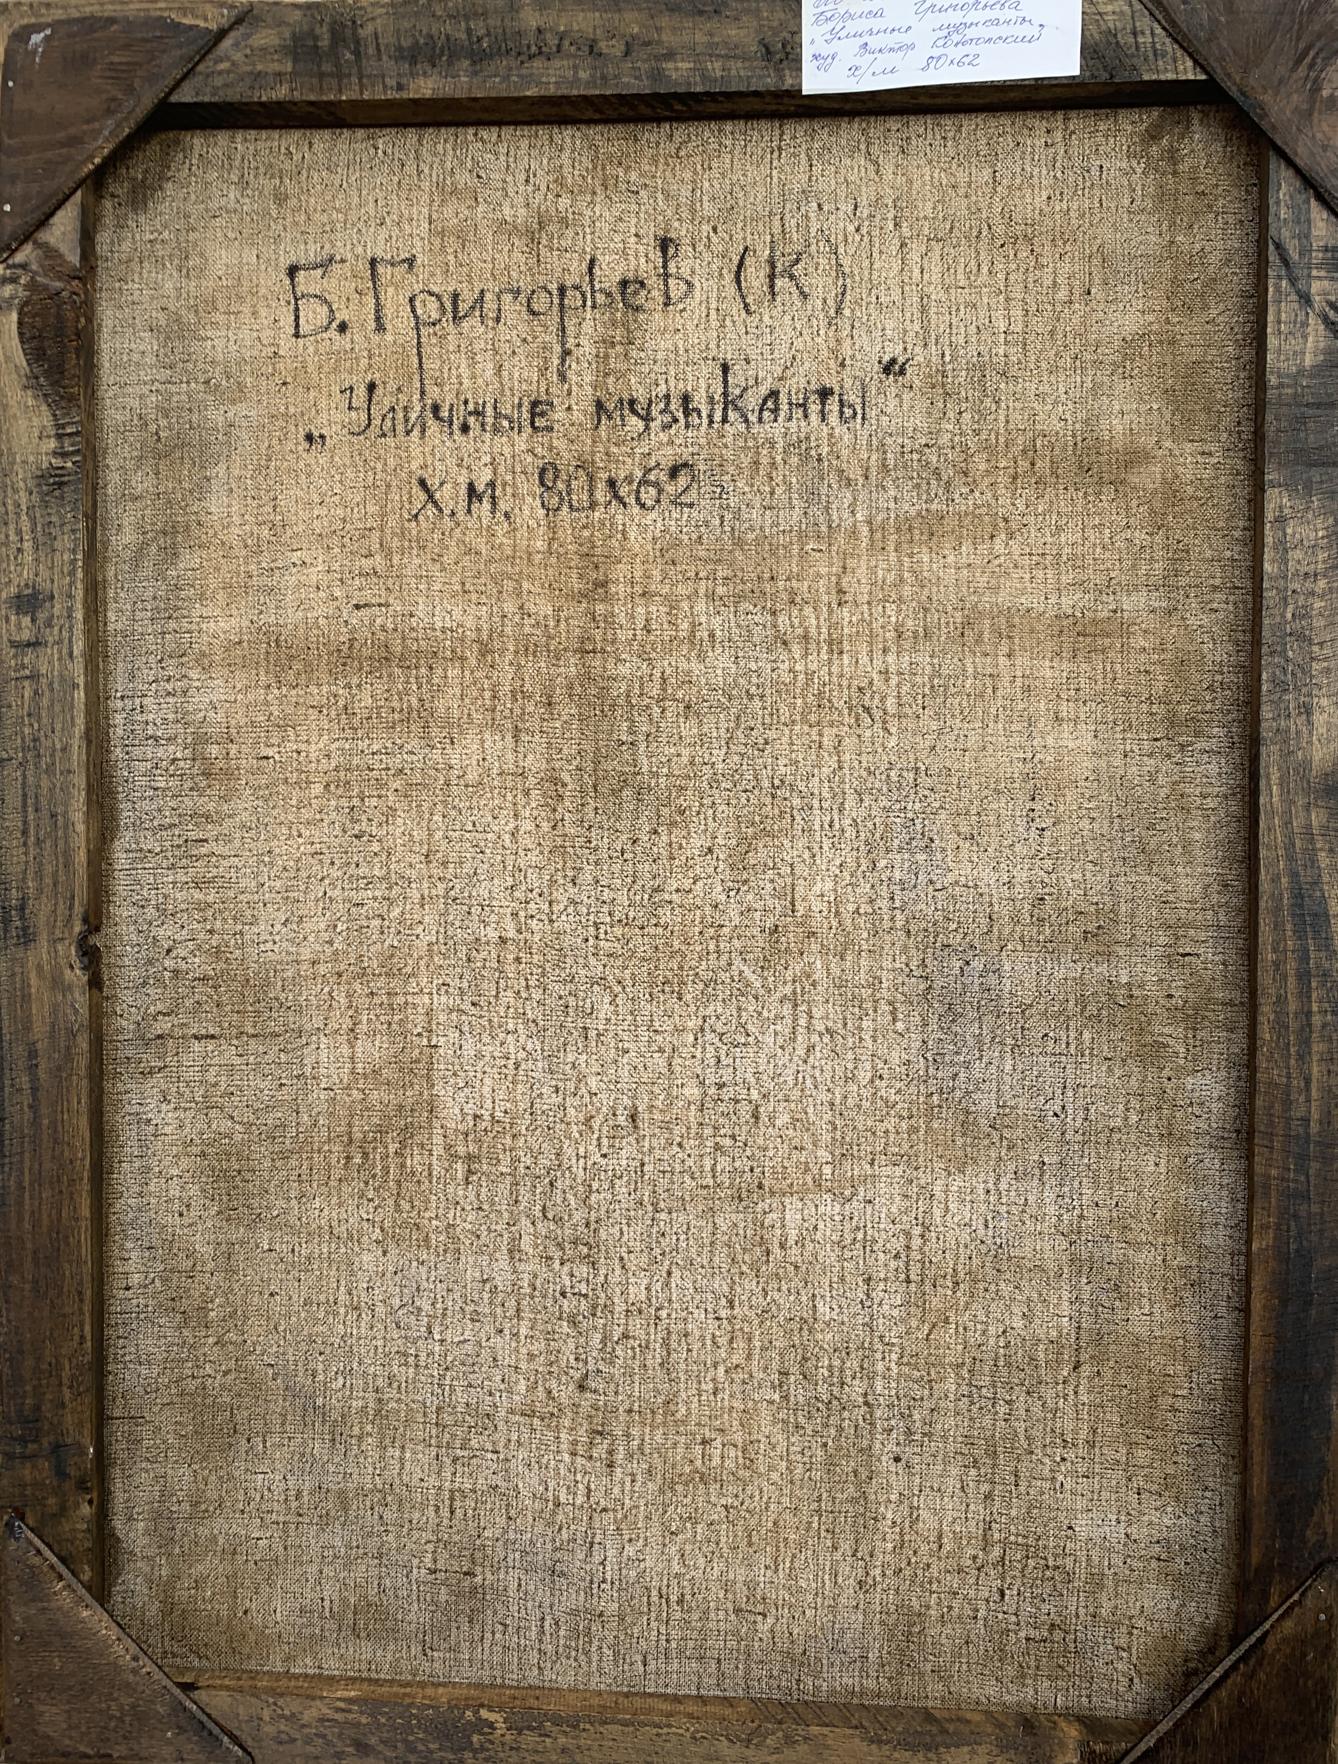 Бориса Григорьева
„Уличные музыканты"
худ. Виктор Конотопский
х/м 80х62
Б. Григорьев (К)
„Уличные музыканты“
х.м. 80х62